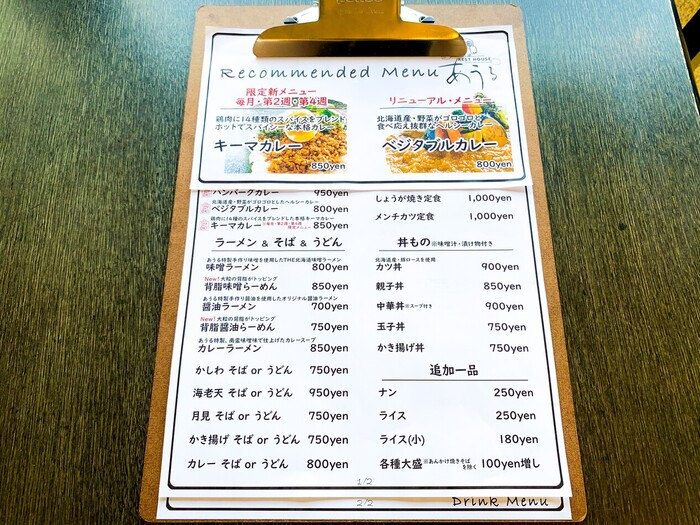 REST HOUSE
Recommended Menu あうる
限定新メニュー
毎月・第2週・第4週
鶏肉に14種類のスパイスをブレンド
ホットでスパイシーな本格カレー
キーマカレー
850yen
リニューアル・メニュー
北海道産・野菜がゴロゴロと
食べ応え抜群なヘルシーカレー
ベジタブルカレー
800yen
ハンバーグカレー 950yen
北海道産・野菜がゴロゴロとしたヘルシーカレー
ベジタブルカレー 800yen
鶏肉に14種のスパイスをブレンドした本格キーマカレー
キーマカレー ※毎月・第2週・第4週 限定メニュー 850yen
ラーメン & そば & うどん
あうる特製手作り味噌を使用したTHE北海道味噌ラーメン
味噌ラーメン 800yen
New！大粒の背脂がトッピング
背脂味噌らーめん 850yen
あうる特製手作り醤油を使用したオリジナル醤油ラーメン
醤油ラーメン 700yen
New！大粒の背脂がトッピング
背脂醤油らーめん 750yen
あうる特製、南蛮味噌味で仕上げたカレースープ
カレーラーメン 850yen
かしわ そば or うどん 750yen
海老天 そば or うどん 950yen
月見 そば or うどん 750yen
かき揚げ そば or うどん 750yen
カレー そば or うどん 800yen
しょうが焼き定食 1,000yen
メンチカツ定食 1,000yen
丼もの ※味噌汁・漬け物付き
北海道産・豚ロースを使用
カツ丼 900yen
親子丼 850yen
中華丼 ※スープ付き 900yen
玉子丼 750yen
かき揚げ丼 750yen
追加一品
ナン 250yen
ライス 250yen
ライス(小) 180yen
各種大盛 ※あんかけ焼きそばを除く 100yen増し
1/2
2/2
Drink Menu